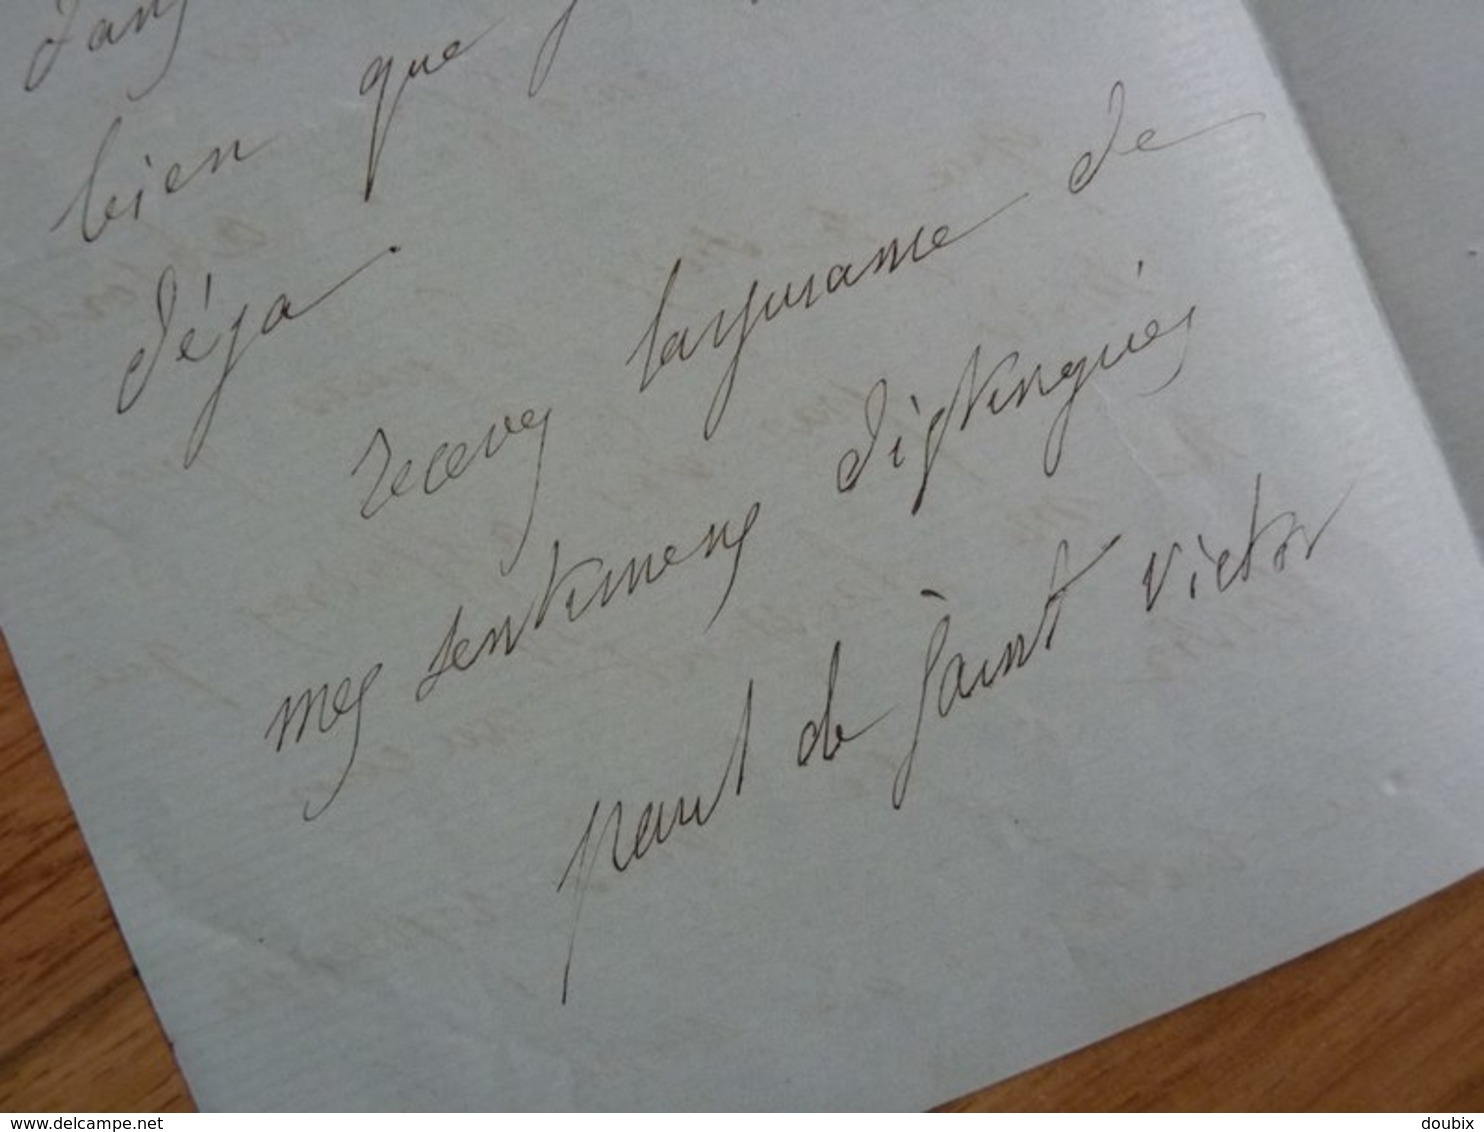 dans
bien que j
déja
recevez l'assurance de
mes sentimens distingués
paul de Saint Victor
www.delcampe.net
doubix